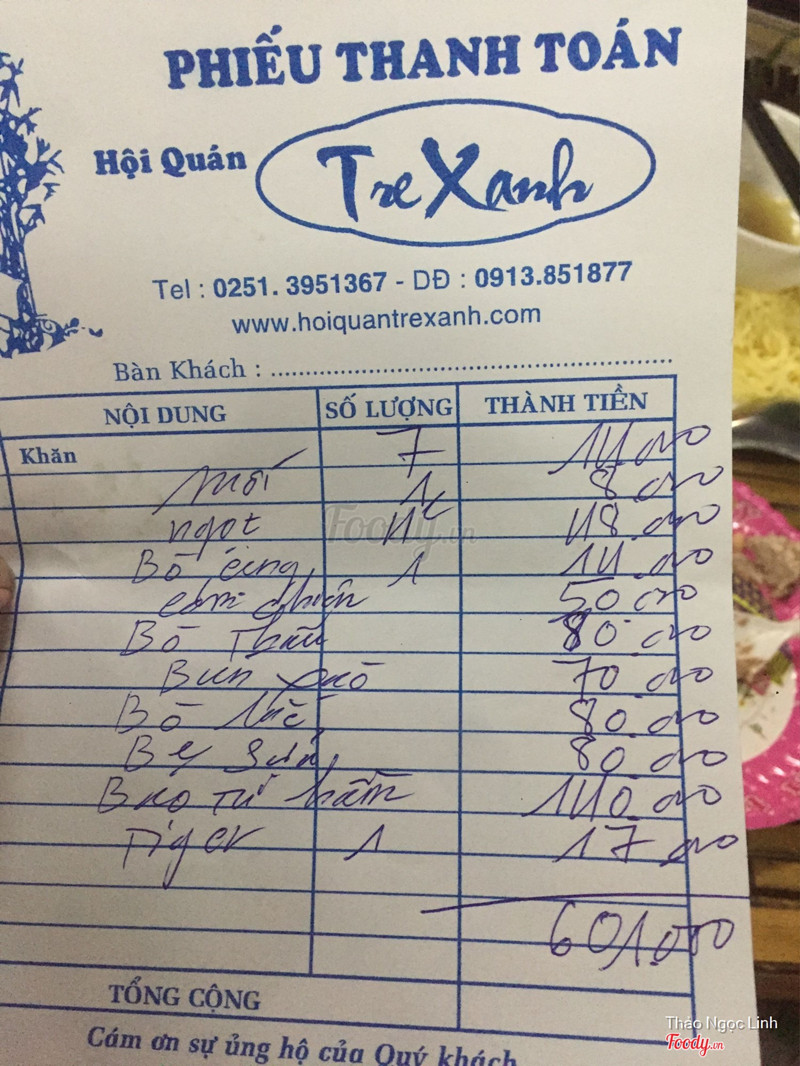 PHIẾU THANH TOÁN
Hội Quán Tre Xanh
Tel : 0251. 3951367 - DĐ : 0913.851877
www.hoiquantrexanh.com
Bàn Khách :
NỘI DUNG SỐ LƯỢNG THÀNH TIỀN
Khăn 7 14 000
suối 1 8 000
ngọt 4 48 000
Bò 1 14 000
cơm chiên 50 000
Bò 80 000
Bún xào 70 000
Bò 80 000
Bẹ sữa 80 000
Bao tử hầm 140 000
Tiger 1 17 000
601.000
TỔNG CỘNG
Cám ơn sự ủng hộ của Quý khách
Foody.vn
Thảo Ngọc Linh
Foody.vn